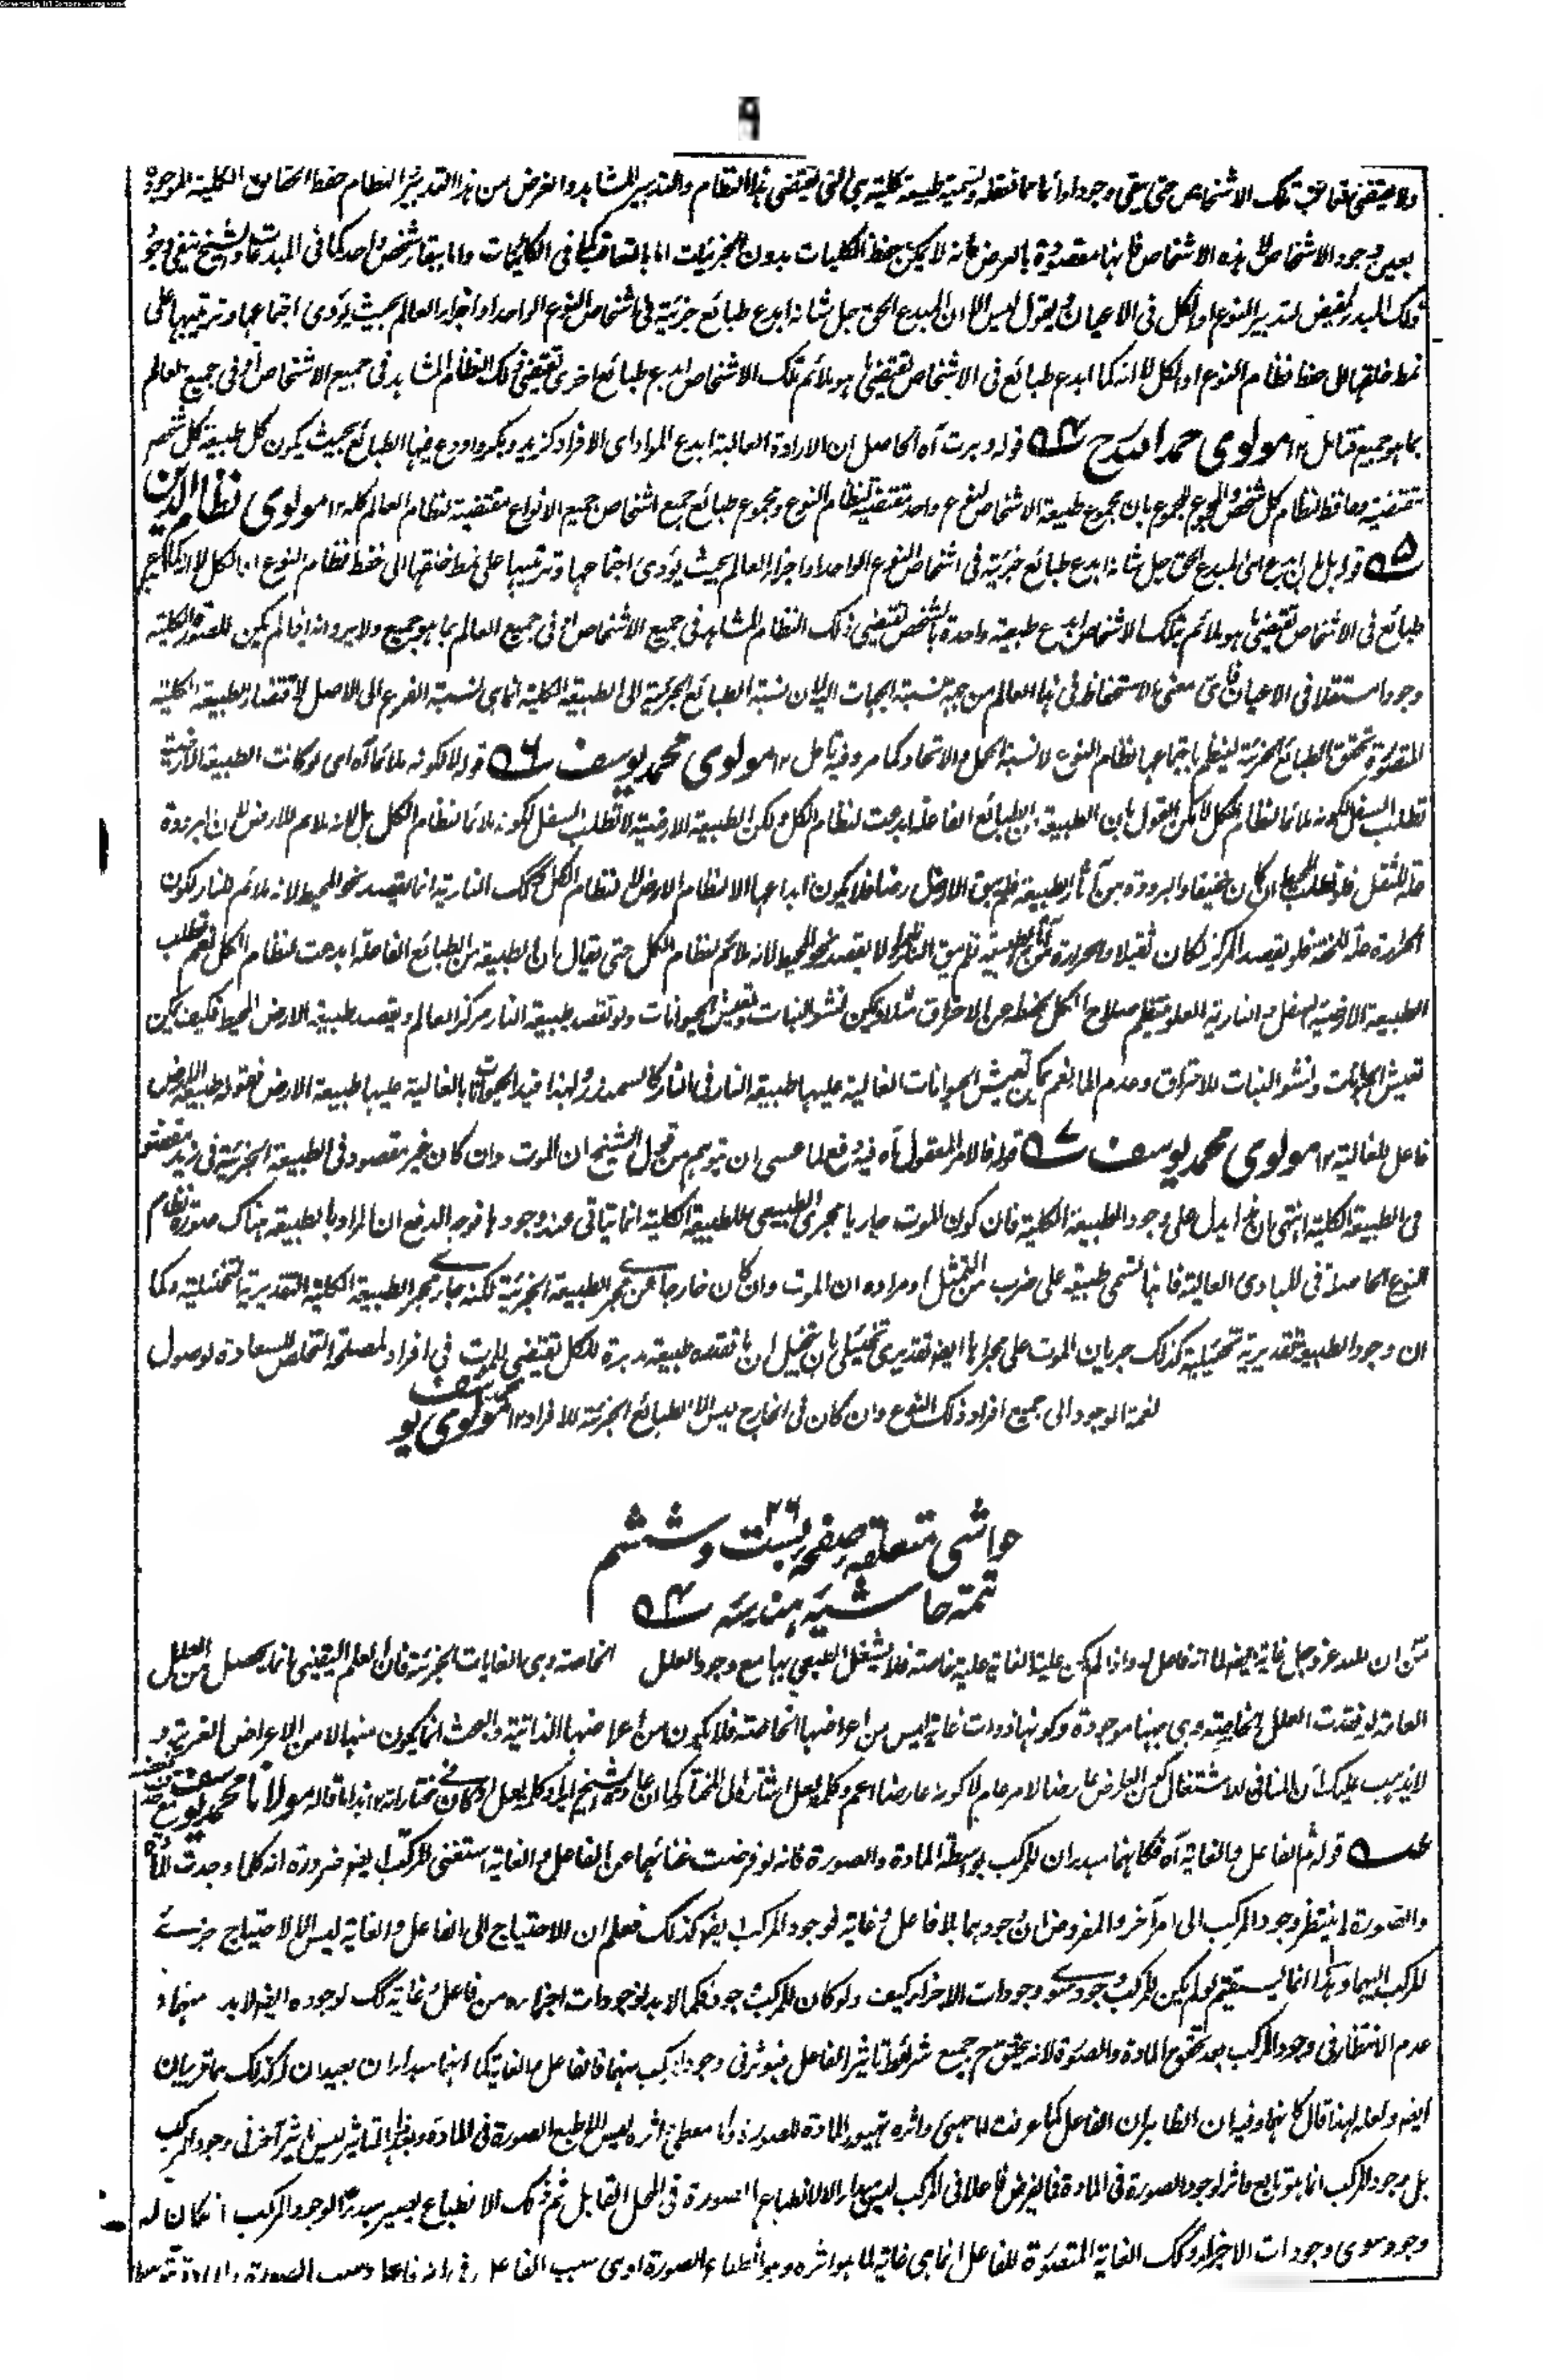 ۹
ولا يقتضى تعاقب تلك الاشخاص حتى يبقى وجودا دائما مما نعقله ونسميه طبيعة كلية هى التى تقتضى هذا النظام والتدبير المشاهد والغرض من هذا التدبير والنظام حفظ الحقائق الكلية الموجودة
بعين وجود الاشخاص لا هذه الاشخاص فانها مقصودة بالعرض فانه لا يمكن حفظ الكليات بدون الجزئيات اما بالتعاقب كما فى الكائنات واما ببقاء شخص واحد كما فى المبدعات والشيخ ينفى وجود
ذلك المبدء لتدبير النوع او الكل فى الاعيان ويقول ليس الا ان المبدع الحق جل شانه ابدع طبائع جزئية فى اشخاص النوع الواحد او اجزاء العالم بحيث يؤدى اجتماعها وترتيبها على
نمط خلقها الى حفظ نظام النوع او الكل لا انه كما ابدع طبائع فى الاشخاص تقتضى ما هو ملائم تلك الاشخاص ابدع طبائع اخرى تقتضى ذلك النظام المشاهد فى جميع الاشخاص او فى جميع العالم
بما هو جميع فتامل ۱۲ مولوى حمد الله ۵۴ قوله وبرت آه الحاصل ان الارادة العالية ابدع المواد اى الافراد كزيد وبكر واودع فيها الطبائع بحيث يكون كل طبيعة كل شخص
مقتضية وحافظة لنظام كل شخص والمجموع للمجموع بان مجموع طبيعة الاشخاص لنوع واحد مقتضية لنظام النوع ومجموع طبائع جميع اشخاص جميع الانواع مقتضية لنظام العالم كله ۱۲ مولوى نظام الدين
۵۵ قوله بل ابدع اى المبدع الحق جل شانه ابدع طبائع جزئية فى اشخاص النوع الواحد او اجزاء العالم بحيث يؤدى اجتماعها وترتيبها على نمط خلقها الى حفظ نظام النوع او الكل لا انه كما ابدع
طبائع فى الاشخاص تقتضى ما هو ملائم بتلك الاشخاص ابدع طبيعة واحدة بالشخص تقتضى ذلك النظام المشاهد فى جميع الاشخاص او فى جميع العالم بما هو جميع ولا يرد انه اذا لم يكن للصورة الكلية
وجودا مستقلا فى الاعيان فاى معنى للاستحفاظ فى هذا العالم من جهة نسبة الجهات اليها لان نسبة الطبائع الجزئية الى الطبيعة الكلية انما هى نسبة الفرع الى الاصل لاقتضاء الطبيعة الكلية
المتصورة تحقق الطبائع الجزئية لينتظم باجتماعها نظام النوع لا نسبة الحمل والاتحاد كما مر وفيه تامل ۱۲ مولوى محمد يوسف ۵۶ قوله لا لكونه ملائما آه اى لو كانت الطبيعة الارضية
تطلب السفل لكونه ملائما لنظام الكل لامكن القول بان الطبيعة من الطبائع الفاعلة ابدعت لنظام الكل ولكن الطبيعة الارضية لا تطلب السفل لكونه ملائما لنظام الكل بل لانه ملائم للارض لان البرودة
علة للثقل فلو تطلب المحيط لكان خفيفا والبرودة من آثار الطبيعة فلم يبق الارض ارضا فلا يكون ابداعها الا لنظام الارض لا لنظام الكل وكذلك النارية انما يقصد نحو المحيط لانه ملائم للنار لكون
الحرارة علة للخفة فلو يقصد المركز لكان ثقيلا والحرارة من آثار الطبيعة فلم يبق النار نارا لا يقصد نحو المحيط لانه ملائم لنظام الكل حتى يقال ان الطبيعة من الطبائع الفاعلة ابدعت لنظام الكل نعم بطلب
الطبيعة الارضية السفل والنارية العلو ينتظم صلاح الكل بحفظه عن الاحتراق مثلا ويمكن نشو النبات وتعيش الحيوانات ولو تقصد طبيعة النار مركز العالم ويقصد طبيعة الارض المحيط فكيف يمكن
تعيش الحيوانات ونشو النبات للاحتراق وعدم الماء نعم يمكن تعيش الحيوانات الغالبة عليها طبيعة النار فى النار كالسمندر ولهذا قيد الحيوانات بالغالبة عليها طبيعة الارض فقوله طبيعة الارض
فاعل للغالبة ۱۲ مولوى محمد يوسف ۵۷ قوله فالامر المعقول آه فيه دفع لما عسى ان يتوهم من قول الشيخ ان الموت وان كان غير مقصود فى الطبيعة الجزئية فى زيد مقصود
فى الطبيعة الكلية انتهى بان هذا يدل على وجود الطبيعة الكلية فان كون الموت جاريا مجرى الطبيعى للطبيعة الكلية انما يتاتى عند وجودها فوجه الدفع ان المراد بالطبيعة هناك صورة نظام
النوع الحاصلة فى المبادى العالية فانها تسمى طبيعة على ضرب من التمثل ومراده ان الموت وان كان خارجا عن مجرى الطبيعة الجزئية لكنه جارى مجرى الطبيعة الكلية التقديرية التخئيلية وكما
ان وجود الطبيعة تقديرية تخئيلية كذلك جريان الموت على مجراها ايضا تقديرى تخئيلى بان يتخيل ان ما نقصده طبيعة مدبرة للكل تقتضى الموت فى افراد لمصلحة التخلص للسعادة لوصول
نعمة الوجود الى جميع افراد ذلك النوع وان كان فى الخارج ليس الا الطبائع الجزئية للافراد ۱۲ مولوى يوسف
حواشى متعلقه صفحه بست و ششم ۲۶
تتمة حاشيه هندسه ۵۴
من ان لله عز وجل غاية ايضا لما انه فاعل له واذا لم يكن علية الغاية علية خاصة فلا يشغل الطبيعى بها مع وجود العلل الخاصة وهى الغايات الجزئية فان العلم اليقينى انما يحصل من العلل
العامة لو فقدت العلل الخاصة وهى ههنا موجودة وكونها ذوات غاية ليس من اعراضها الخاصة فلا يكون من اعراضها الذاتية والبحث انما يكون منها لا من الاعراض الغريبة و
لا يذهب عليك ان المنافى للاشتغال كون العارض عارضا لامر عام لا كونه عارضا اعم وكلمة لعل اشارة الى المختار كما ان على الشيخ ايراد كلمة لعل وان كان مختاراله ۱۲ هذا ما قاله مولانا محمد يوسف
قوله ثم الفاعل والغاية آه فكانهما مبدءان للمركب بواسطة المادة والصورة فانه لو فرضت غنائهما عن الفاعل والغاية استغنى المركب ايضا ضرورة انه كلما وجدت المادة
والصورة لا ينتظر وجود المركب الى امر آخر والمفروض ان وجودهما بلا فاعل وغاية لوجود المركب ايضا كذلك فعلم ان الاحتياج الى الفاعل والغاية ليس الا لاحتياج جزئے
المركب اليهما وهذا انما يستقيم لو لم يكن للمركب وجود سوى وجودات الاجزاء كيف ولو كان للمركب وجود فكما لا بد لوجودات اجزاءه من فاعل وغاية كذلك لوجوده ايضا لا بد منهما و
عدم الانتظار فى وجود المركب بعد تحقق المادة والصورة لانه يتحقق ح جميع شرائط تاثير الفاعل فيؤثر فى وجود المركب منهما فالفاعل والغاية كما انهما مبدءان بعيدان كذلك هما قريبان
ايضا ولعله لهذا قال كانهما وفيه ان الظاهر ان الفاعل كما عرفت للجسمى واثره تهيو المادة للصورة فاذا معطى اثره ليس الا طبع الصورة فى المادة وبهذا التاثير ليس تاثير آخر فى وجود المركب
بل وجود المركب انما هو تابع واثر لوجود الصورة فى المادة فما يفرض فاعلا فى المركب ليس مبدءا الا لانطباع الصورة فى المحل القابل ثم ذلك الانطباع يصير مبدءا لوجود المركب ان كان له
وجود سوى وجودات الاجزاء وكذلك الغاية المتصورة للفاعل انما هى غاية لما هو اثره وهو انطباع الصورة